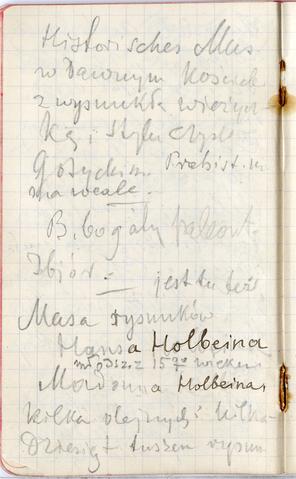 Historisches Mus.
w Dawnym Kościele
z wysmukłą wieżycz
ką i stylu czysto
Gotyckim. Prehist. m.
ma wcale.
B. bogaty paleont.
Zbiór.— jest tu też
Masa rysunków
Hansa Holbeina
młodsz. z 15go wieku
Madonna Holbeina,
kilka olejnych i kilka
Dziesiąt tuszem rysun